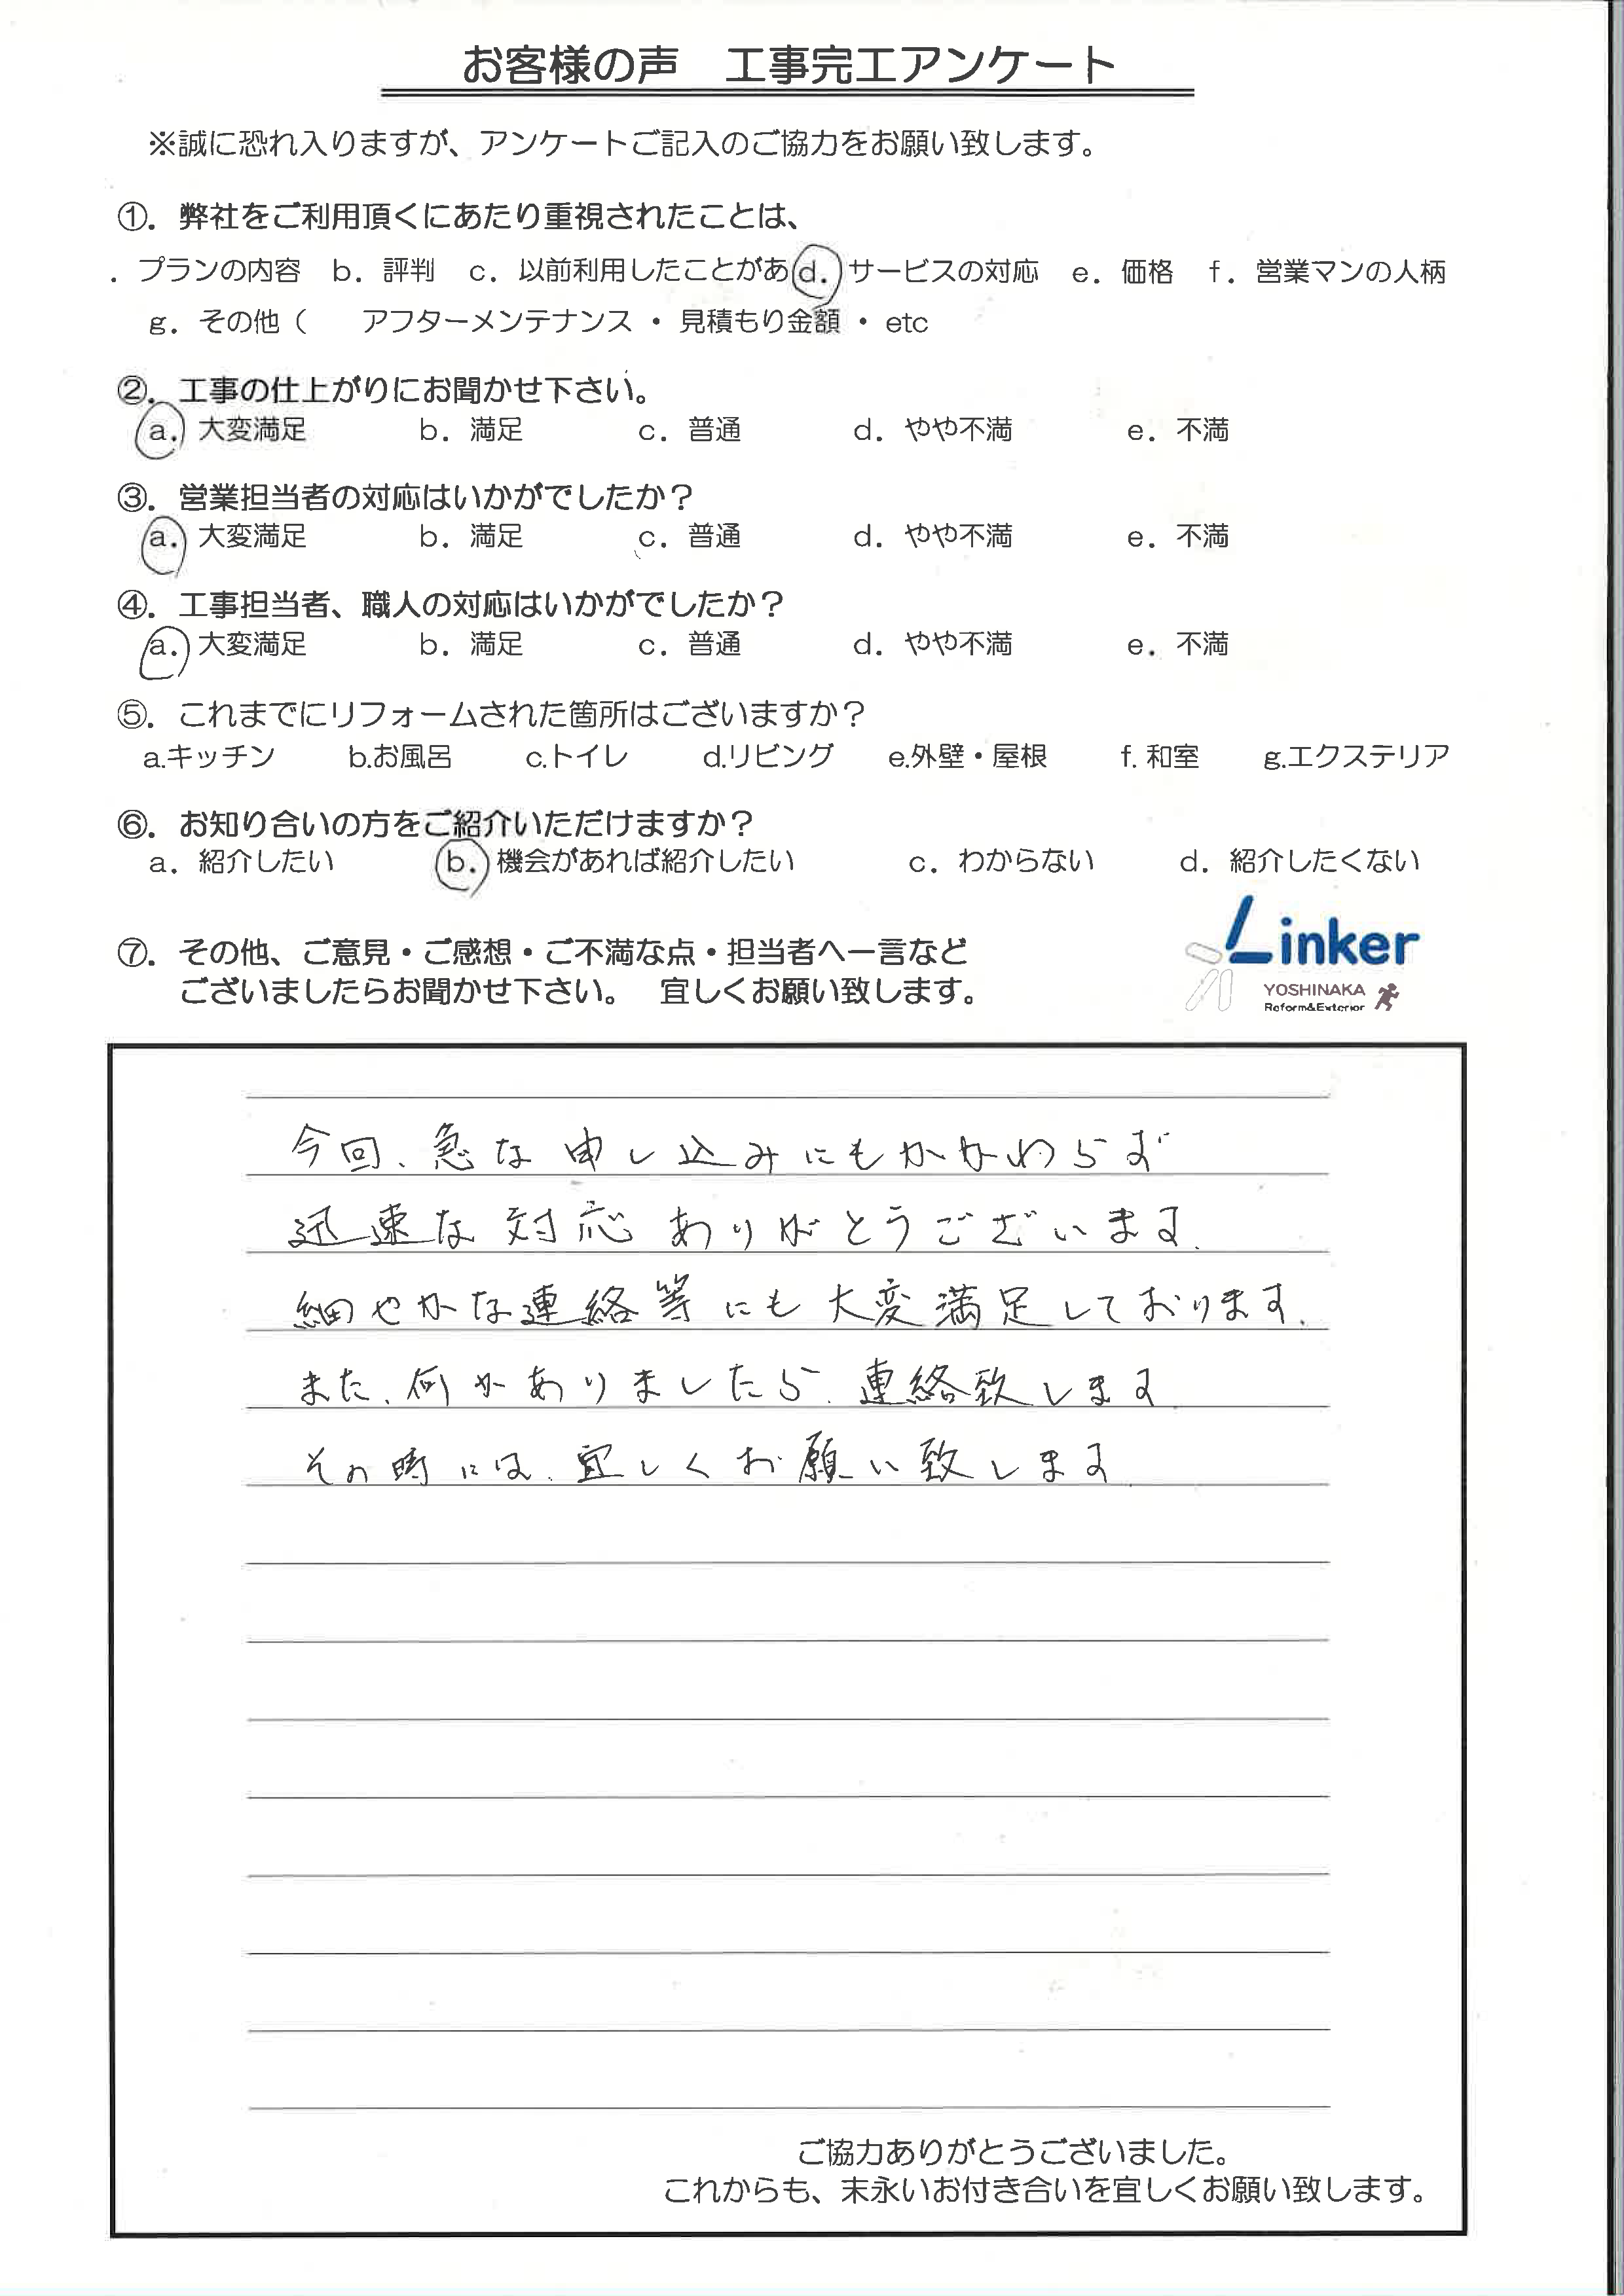 お客様の声　工事完工アンケート
※誠に恐れ入りますが、アンケートご記入のご協力をお願い致します。
①．弊社をご利用頂くにあたり重視されたことは、
．プランの内容　b．評判　c．以前利用したことがあ d．サービスの対応　e．価格　f．営業マンの人柄
g．その他（　　アフターメンテナンス ・ 見積もり金額 ・ etc
②．工事の仕上がりにお聞かせ下さい。
a．大変満足　b．満足　c．普通　d．やや不満　e．不満
③．営業担当者の対応はいかがでしたか？
a．大変満足　b．満足　c．普通　d．やや不満　e．不満
④．工事担当者、職人の対応はいかがでしたか？
a．大変満足　b．満足　c．普通　d．やや不満　e．不満
⑤．これまでにリフォームされた箇所はございますか？
a.キッチン　b.お風呂　c.トイレ　d.リビング　e.外壁・屋根　f. 和室　g.エクステリア
⑥．お知り合いの方をご紹介いただけますか？
a．紹介したい　b．機会があれば紹介したい　c．わからない　d．紹介したくない
⑦．その他、ご意見・ご感想・ご不満な点・担当者へ一言など
ございましたらお聞かせ下さい。　宜しくお願い致します。
Linker
YOSHINAKA
Reform&Exterior
今回、急な申し込みにもかかわらず
迅速な対応ありがとうございます.
細やかな連絡等にも大変満足しております.
また、何かありましたら、連絡致します
その時には、宜しくお願い致します
ご協力ありがとうございました。
これからも、末永いお付き合いを宜しくお願い致します。